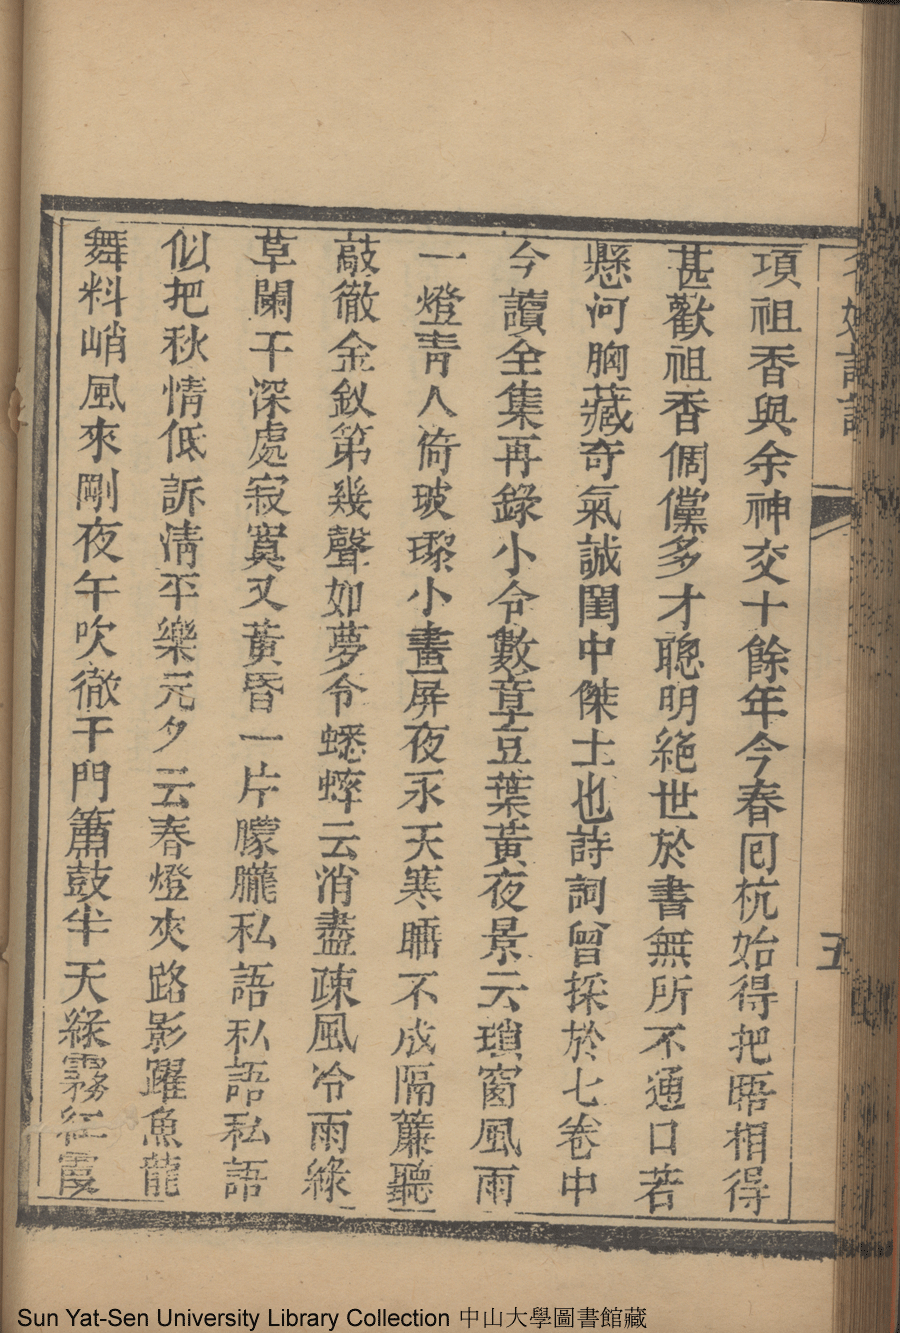 項祖香與余神交十餘年今春囘杭始得把晤相得
甚歡祖香倜儻多才聰明絕世於書無所不通口若
懸河胸藏奇氣誠閨中傑士也詩詞曾採於七卷中
今讀全集再錄小令數章豆葉黃夜景云瑣窗風雨
一燈靑人倚玻瓈小畫屏夜永天寒睡不成隔簾聽
敲徹金釵第幾聲如夢令蟋蟀云消盡疎風冷雨綠
草闌干深處寂寞又黃昏一片朦朧私語私語私語
似把秋情低訴淸平樂元夕云春燈夾路影躍魚龍
舞料峭風來剛夜午吹徹千門簫鼓半天綠霧紅霞
五
Sun Yat-Sen University Library Collection 中山大學圖書館藏